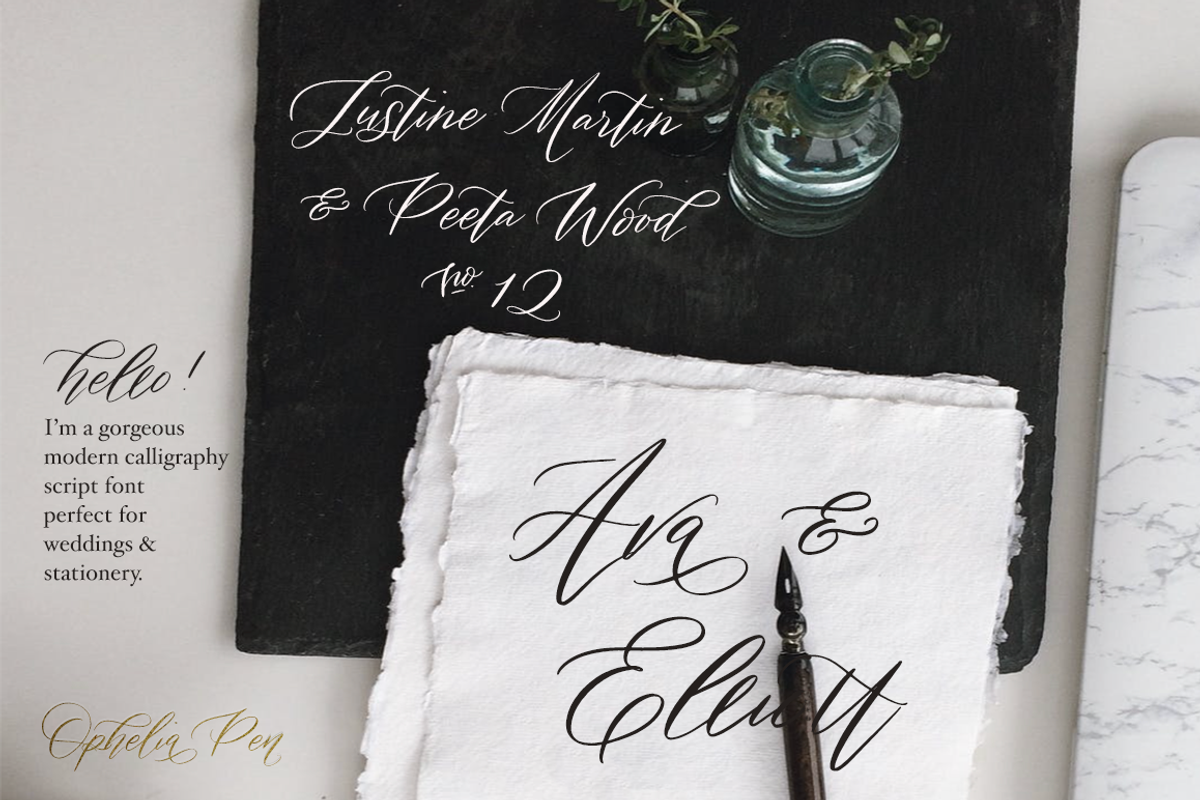 Justine Martin
& Peeta Wood
no. 12
hello!
I'm a gorgeous
modern calligraphy
script font
perfect for
weddings &
stationery.
Ava &
Elliott
Ophelia Pen